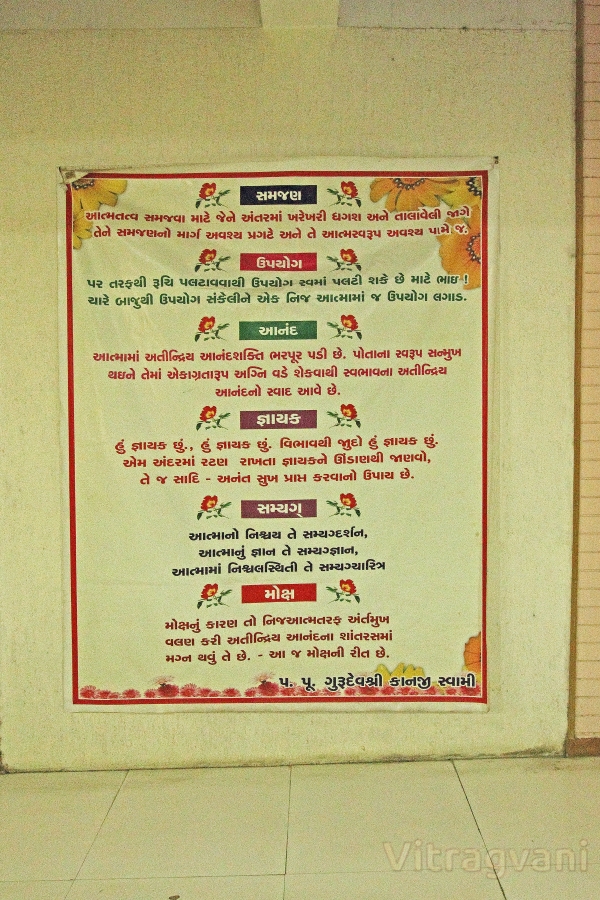 સમજણ
આત્મતત્વ સમજવા માટે જેને અંતરમાં ખરેખરી ધગશ અને તાલાવેલી જાગે
તેને સમજણનો માર્ગ અવશ્ય પ્રગટે અને તે આત્મસ્વરૂપ અવશ્ય પામે જ.
ઉપયોગ
પર તરફથી રૂચિ પલટાવવાથી ઉપયોગ સ્વમાં પલટી શકે છે માટે ભાઇ !
ચારે બાજુથી ઉપયોગ સંકેલીને એક નિજ આત્મામાં જ ઉપયોગ લગાડ.
આનંદ
આત્મામાં અતીન્દ્રિય આનંદશક્તિ ભરપૂર પડી છે. પોતાના સ્વરૂપ સન્મુખ
થઇને તેમાં એકાગ્રતારૂપ અગ્નિ વડે શેકવાથી સ્વભાવના અતીન્દ્રિય
આનંદનો સ્વાદ આવે છે.
જ્ઞાયક
હું જ્ઞાયક છું., હું જ્ઞાયક છું. વિભાવથી જુદો હું જ્ઞાયક છું.
એમ અંદરમાં રટણ રાખતા જ્ઞાયકને ઊંડાણથી જાણવો,
તે જ સાદિ - અનંત સુખ પ્રાપ્ત કરવાનો ઉપાય છે.
સમ્યગ્
આત્માનો નિશ્ચય તે સમ્યગ્દર્શન,
આત્માનું જ્ઞાન તે સમ્યગ્જ્ઞાન,
આત્મામાં નિશ્ચલસ્થિતી તે સમ્યગ્ચારિત્ર
મોક્ષ
મોક્ષનું કારણ તો નિજઆત્મતરફ અંર્તમુખ
વલણ કરી અતીન્દ્રિય આનંદના શાંતરસમાં
મગ્ન થવું તે છે. - આ જ મોક્ષની રીત છે.
પ. પૂ. ગુરૂદેવશ્રી કાનજી સ્વામી
Vitragvani